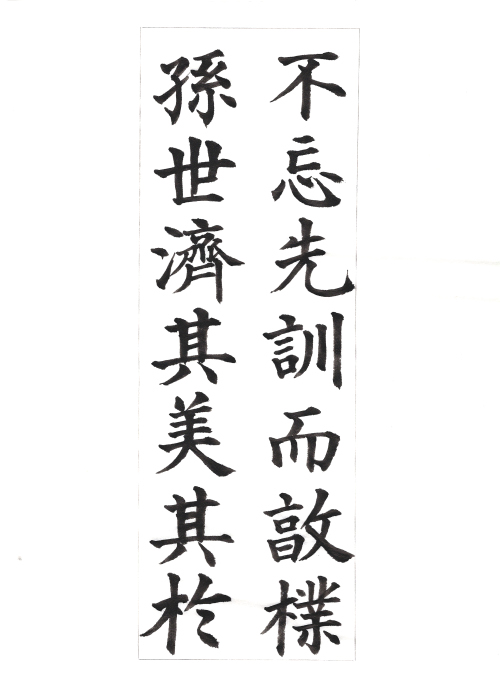 不忘先訓而敦樸
孫世濟其美其於